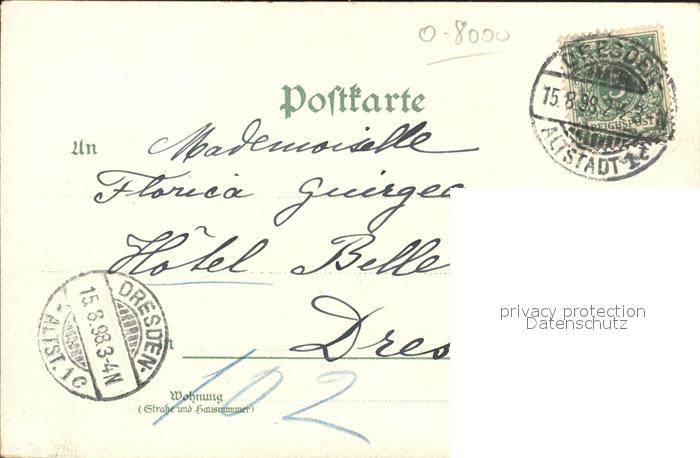 0-8000
DRESDEN
15.8.98.2
ALTSTADT 12
5
REICHSPOST
Postkarte
An Mademoiselle
Florica Guirgea
Hôtel Belle
Dres
DRESDEN-
15.8.98.3-4N
*ALTST.1C
in
102
Wohnung
(Straße und Hausnummer)
privacy protection
Datenschutz